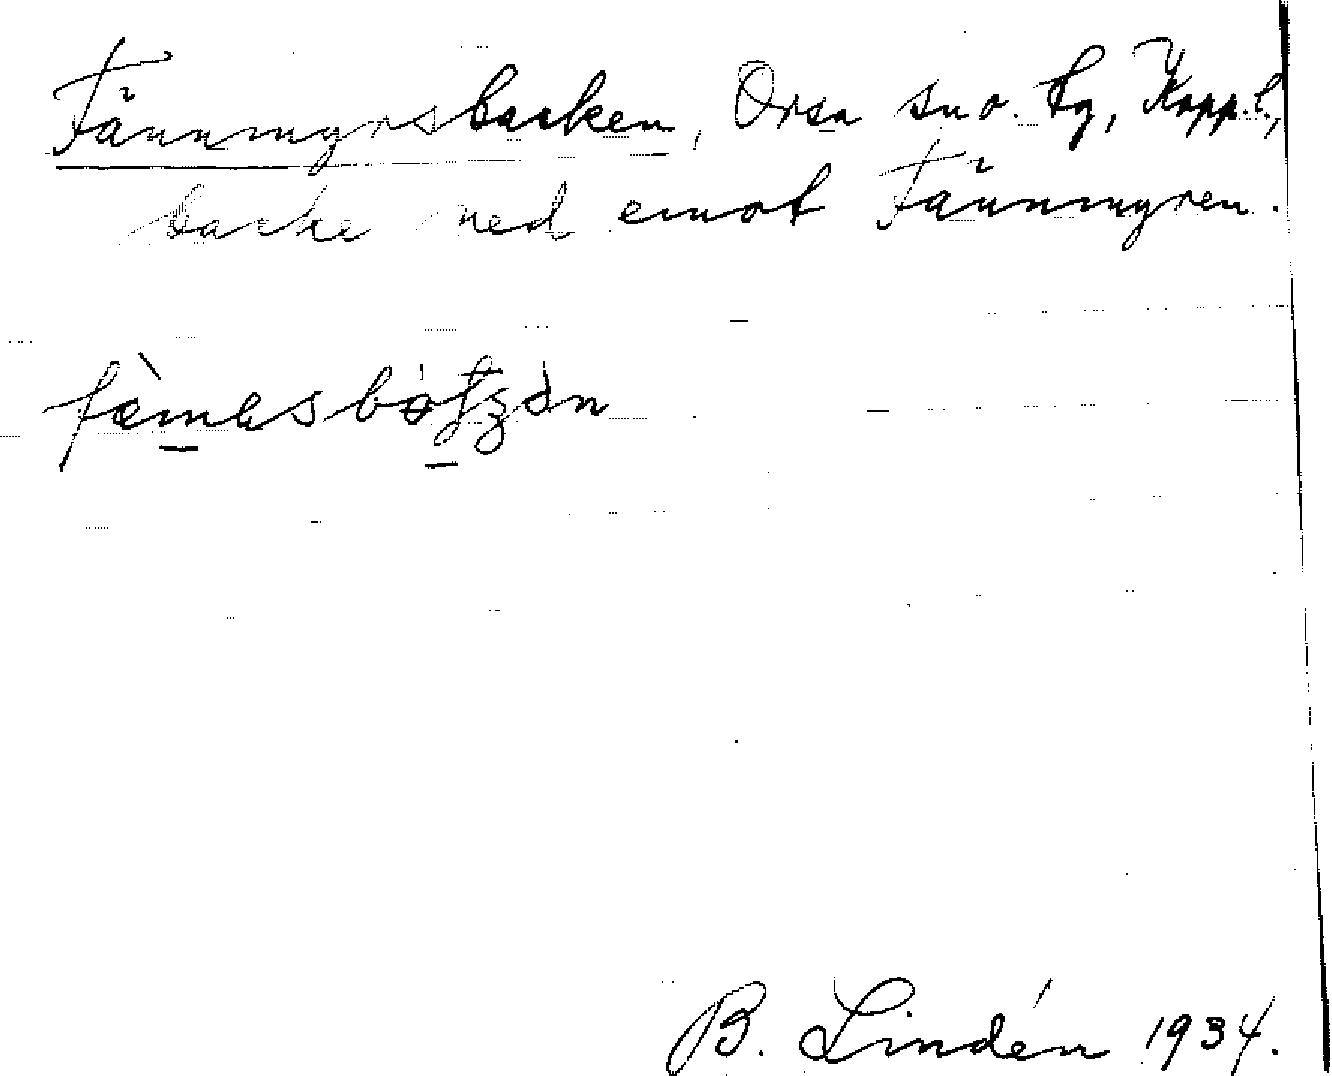 Fännmyrsbacken, Orsa sn o. tg, Kopp.l.,
backe ned emot Fännmyren.
B. Lindén 1934.